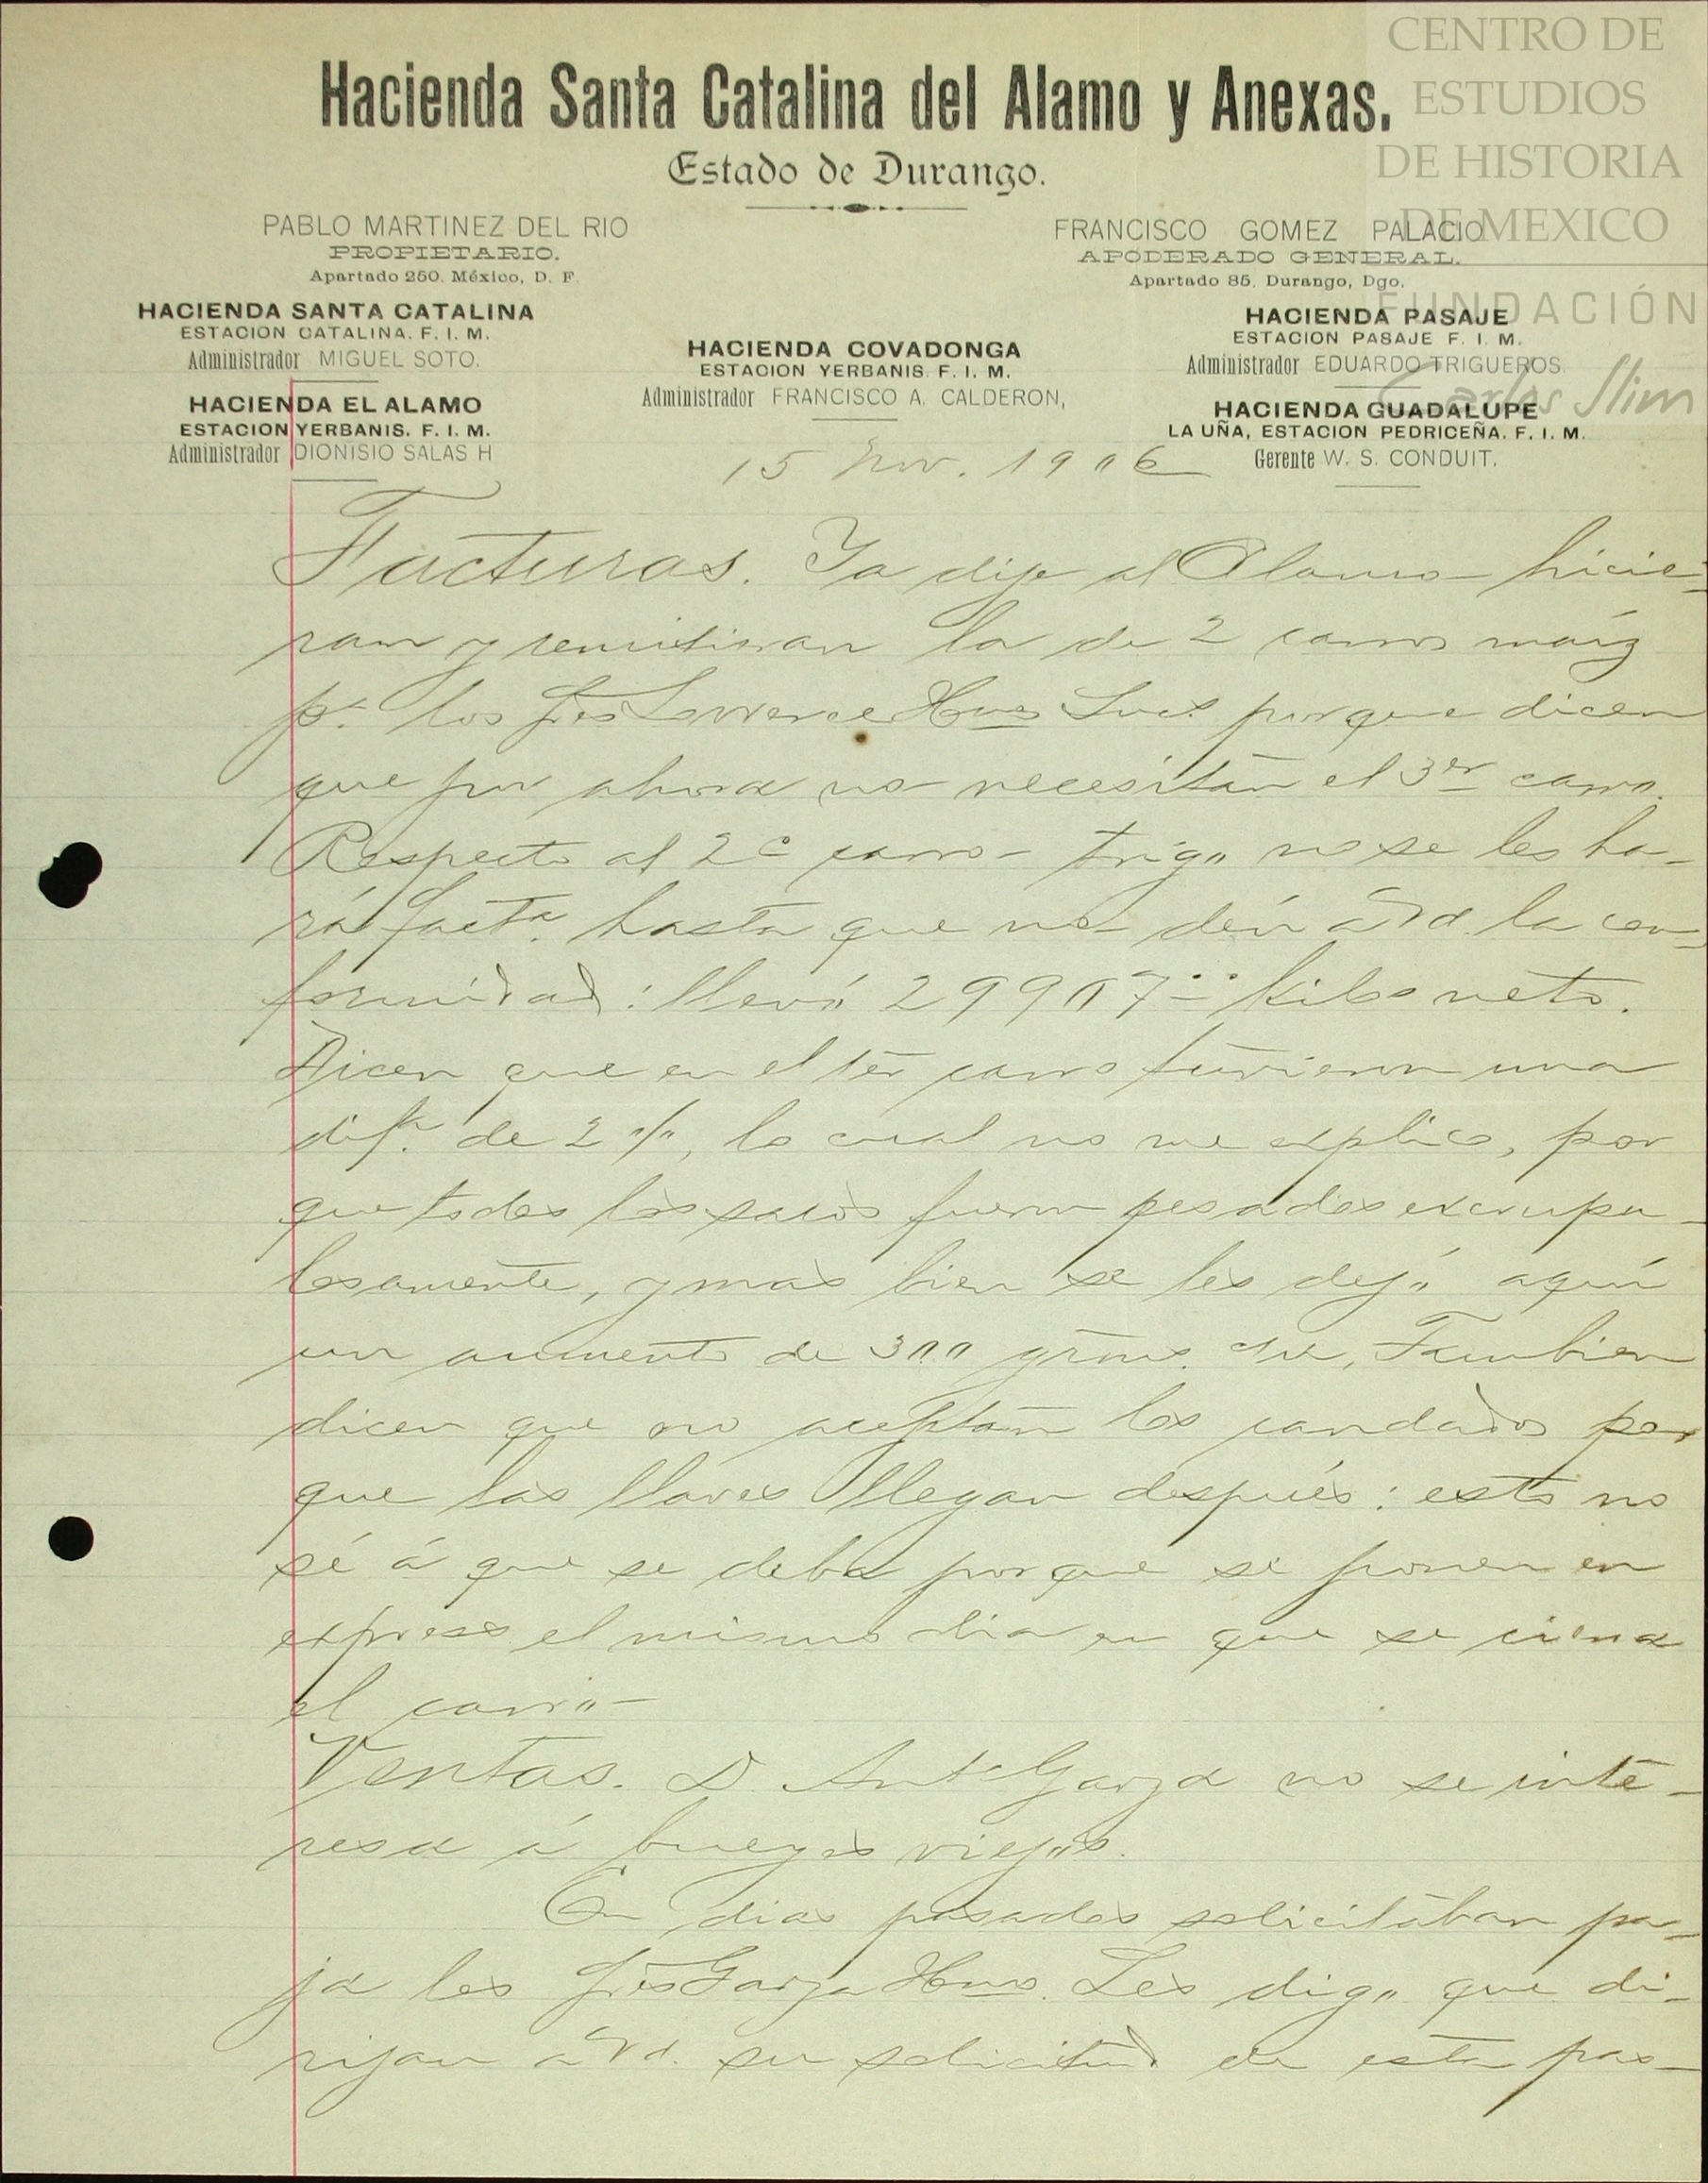 CENTRO DE
ESTUDIOS
DE HISTORIA
DE MEXICO
FUNDACIÓN
Carlos Slim
Hacienda Santa Catalina del Alamo y Anexas.
Estado de Durango.
PABLO MARTINEZ DEL RIO
PROPIETARIO.
Apartado 250, México, D. F.
FRANCISCO GOMEZ PALACIO
APODERADO GENERAL.
Apartado 85, Durango, Dgo.
HACIENDA SANTA CATALINA
ESTACION CATALINA. F. I. M.
Administrador MIGUEL SOTO.
HACIENDA EL ALAMO
ESTACION YERBANIS. F. I. M.
Administrador DIONISIO SALAS H
HACIENDA COVADONGA
ESTACION YERBANIS F. I. M.
Administrador FRANCISCO A. CALDERON,
HACIENDA PASAJE
ESTACION PASAJE F. I. M.
Administrador EDUARDO TRIGUEROS.
HACIENDA GUADALUPE
LA UÑA, ESTACION PEDRICEÑA. F. I. M.
Gerente W. S. CONDUIT.
15 Nov. 1906
Facturas. Ya dije al Alamo hicie-
ran y remitieran la de 2 carros maíz
pa. los Sres Hnos Sucs porque dicen
que por ahora no necesitan el 3er carro.
Respecto al 2o carro trigo no se les ha-
rá facta. hasta que no dén á Vd. la con-
formidad: llevó 29907 kilos neto.
Dicen que en el 1er carro tuvieron una
difa. de 2 %, lo cual no me explico, por
que todos los sacos fueron pesados escrupu-
losamente, y mas bien se les dejó aquí
un aumento de 300 grms. Tambien
dicen que no aceptan los candados por
que las llaves llegan después: esto no
sé á que se deba porque se ponen en
express el mismo dia en que se cierra
el carro-
Ventas. D. Anto Garza no se inte-
resa á bueyes viejos.
En dias pasados solicitaban pa-
ja los Sres Garza Hnos. Les digo que di-
rijan á Vd. su solicitud de esta pas-